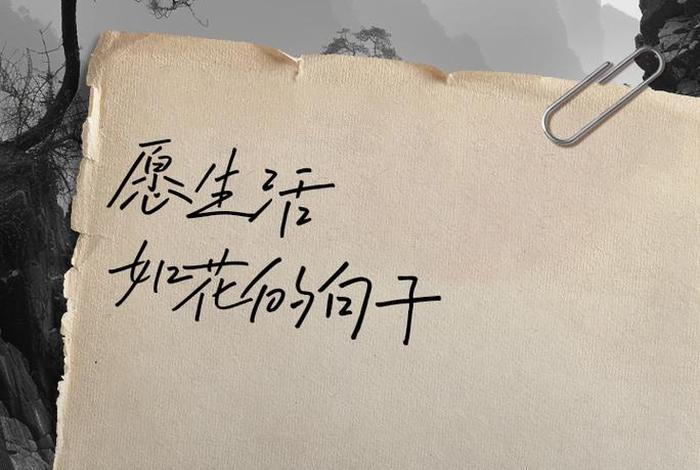 愿生活
如花的句子